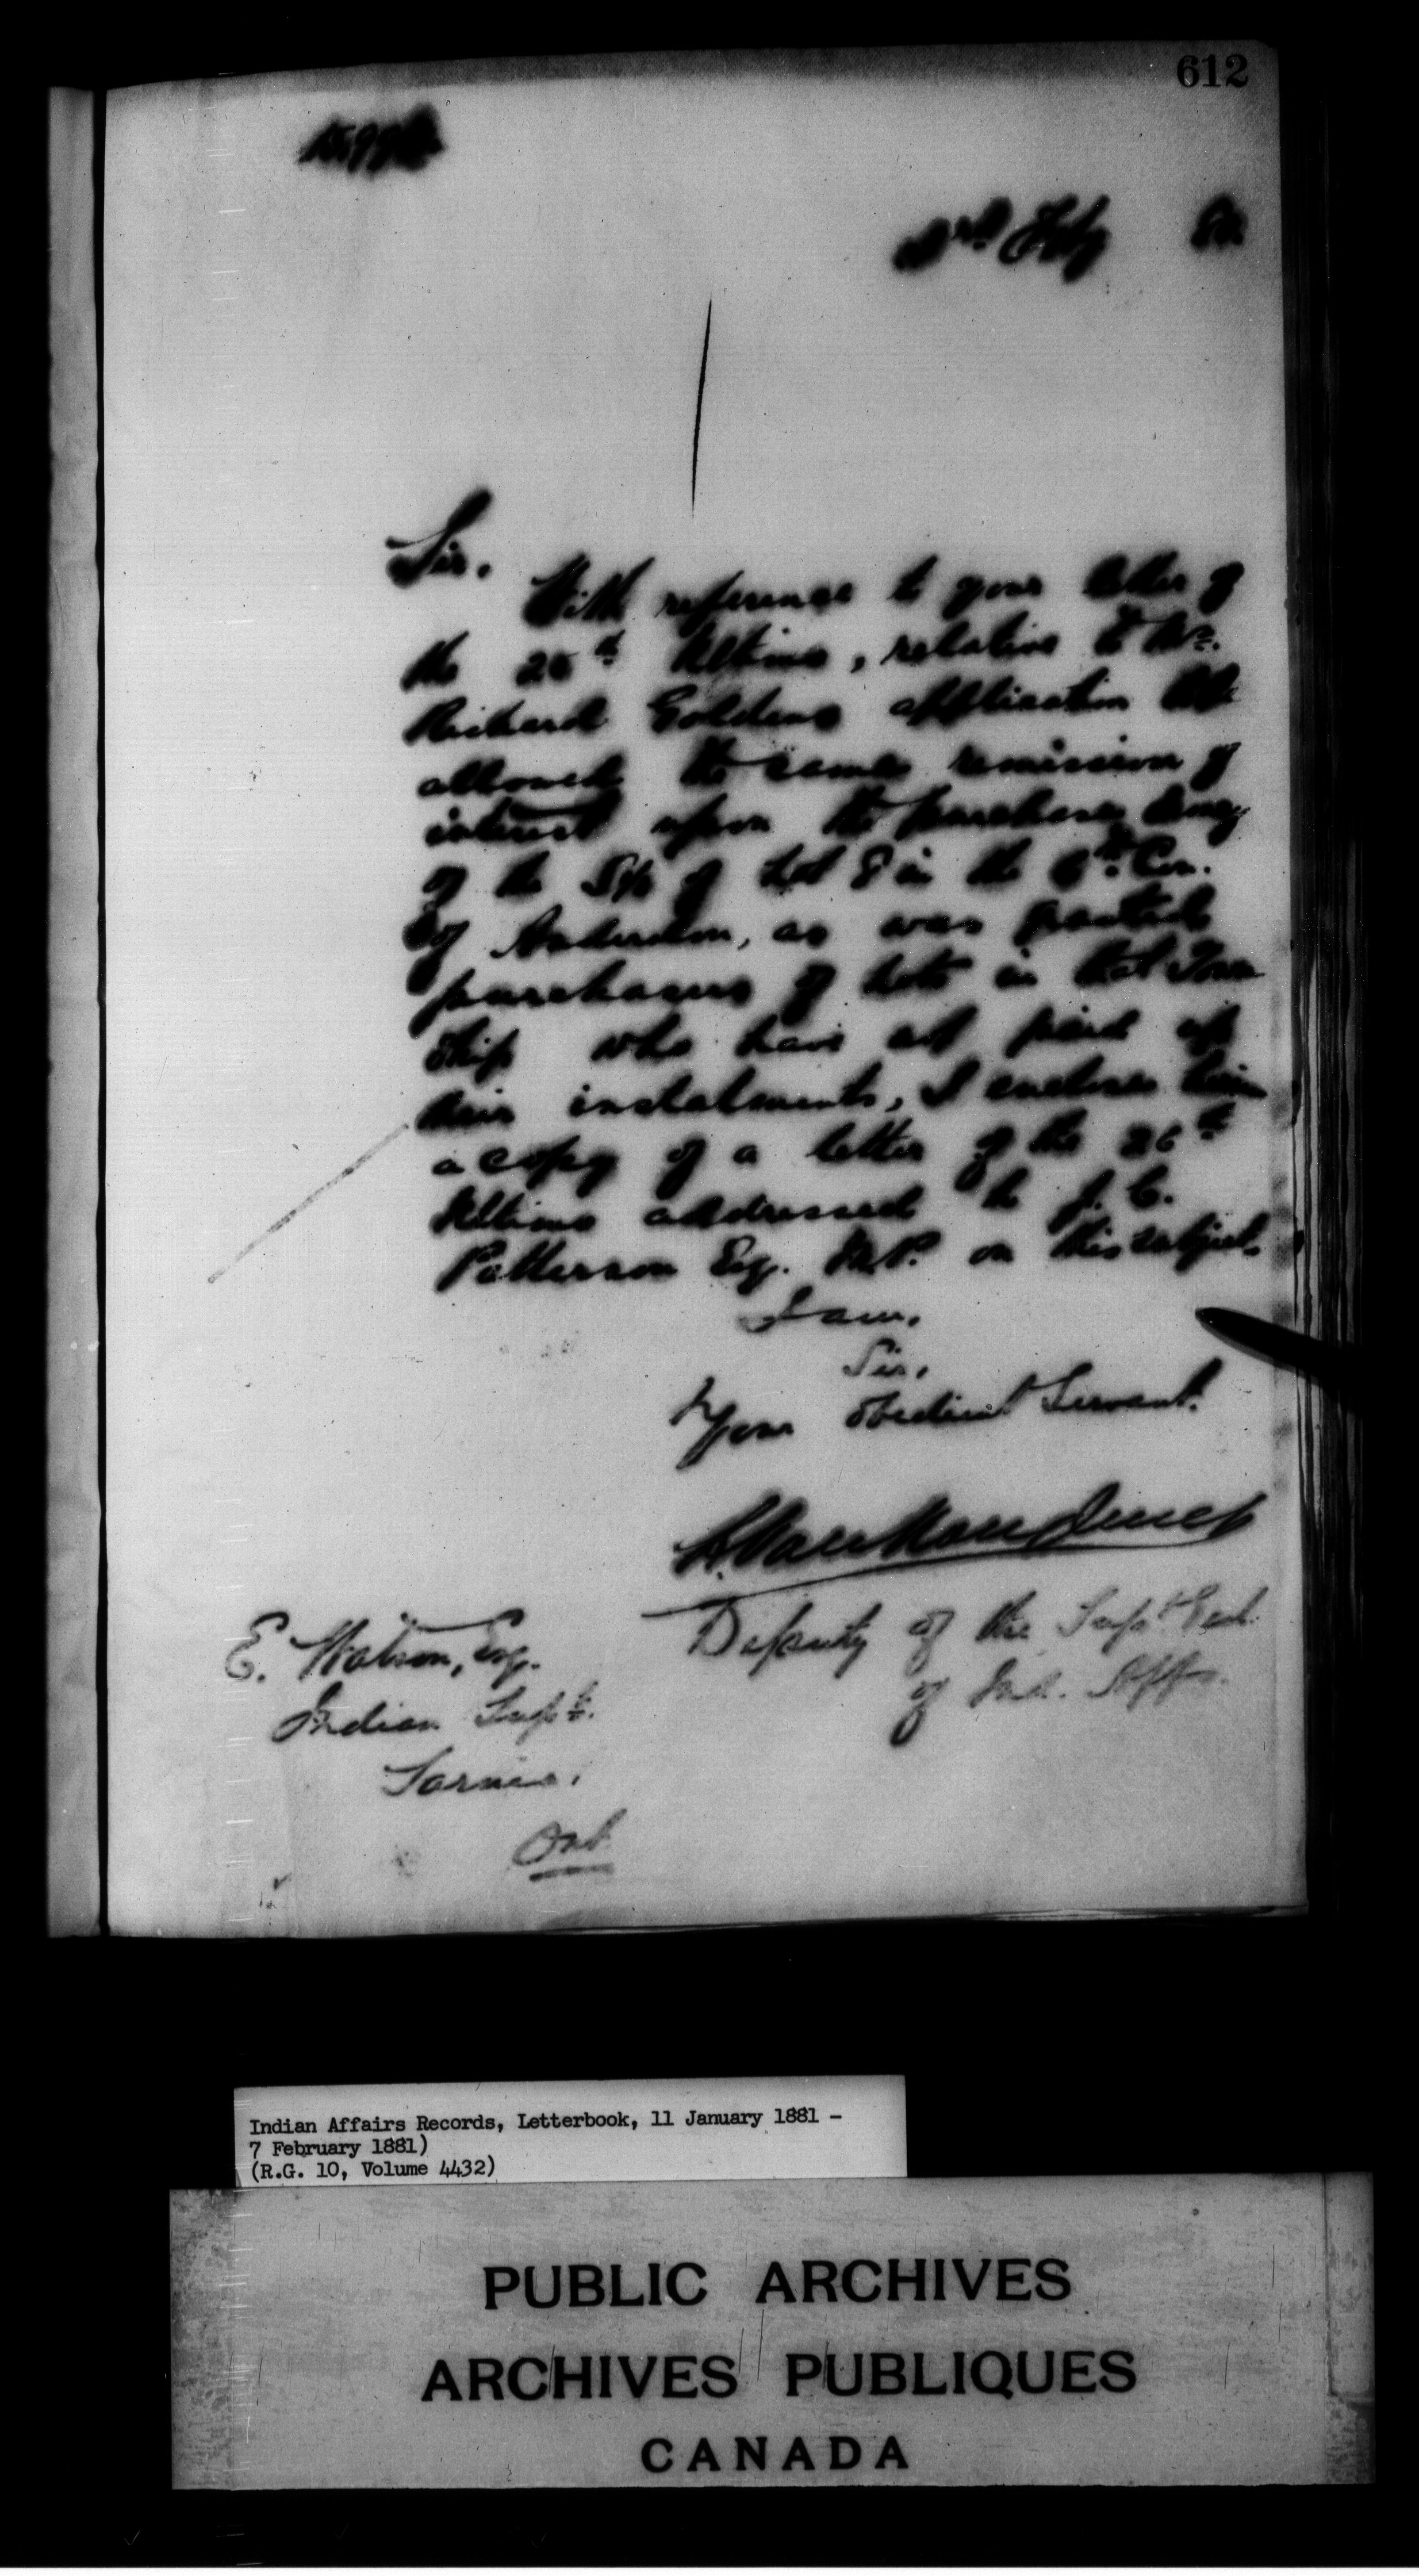 612
Feby 81
Sir.
With reference to your letter of
the 28th Ultimo, relative to Mr.
Richard Goldens application to be
allowed the same remission of
interest upon the purchase money
of the S½ of Lot 8 in the 6th Con.
of Anderdon, as was granted
purchasers of lots in that Town
ship who have not paid up
their instalments, I enclose
a copy of a letter of the 26th
Ultimo addressed to J. C.
Patterson Esq. M.P. on this subject.
I am,
Sir,
Your obedient Servant.
L. VanKoughnet
Deputy of the Supt Genl.
of Ind. Affs.
E. Watson, Esq.
Indian Supt.
Sarnia.
Ont
Indian Affairs Records, Letterbook, 11 January 1881 -
7 February 1881)
(R.G. 10, Volume 4432)
PUBLIC ARCHIVES
ARCHIVES PUBLIQUES
CANADA